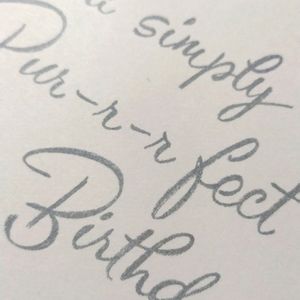 simply
Pur-r-r-fect
Birthd